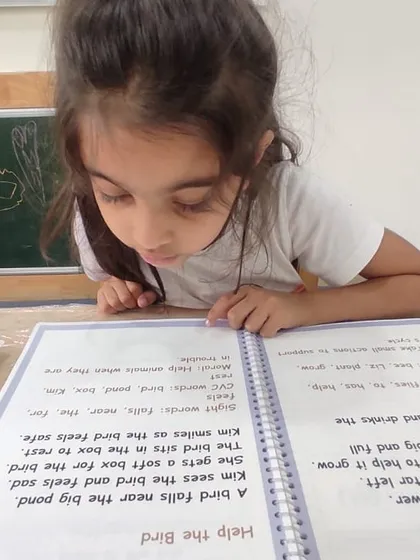 left.
to help it grow.
big and full
and drinks the
to has, help,
Liz, plant, grow,
small actions to support
cycle
Help the Bird
A bird falls near the big pond.
Kim sees the bird and feels sad.
She gets a soft box for the bird.
The bird sits in the box to rest.
Kim smiles as the bird feels safe.
Sight words: falls, near, the, for,
feels
CVC words: bird, pond, box, Kim,
rest
Moral: Help animals when they are
in trouble.